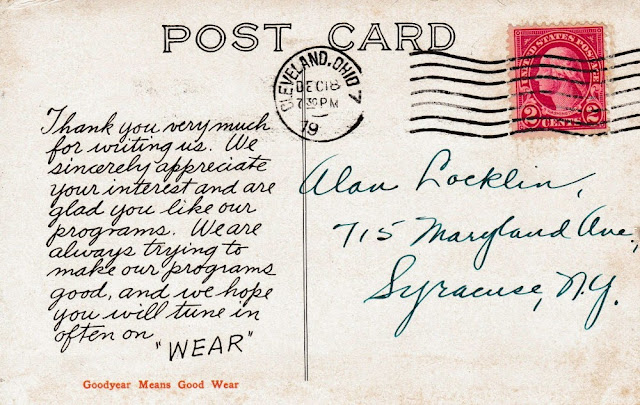 POST CARD
CLEVELAND, OHIO 7
DEC 18
7 30 PM
19
UNITED STATES POSTAGE
2 CENTS 2
Thank you very much
for writing us. We
sincerely appreciate
your interest and are
glad you like our
programs. We are
always trying to
make our programs
good, and we hope
you will tune in
often on
"WEAR"
Goodyear Means Good Wear
Alan Locklin,
715 Maryland Ave.,
Syracuse, N.Y.